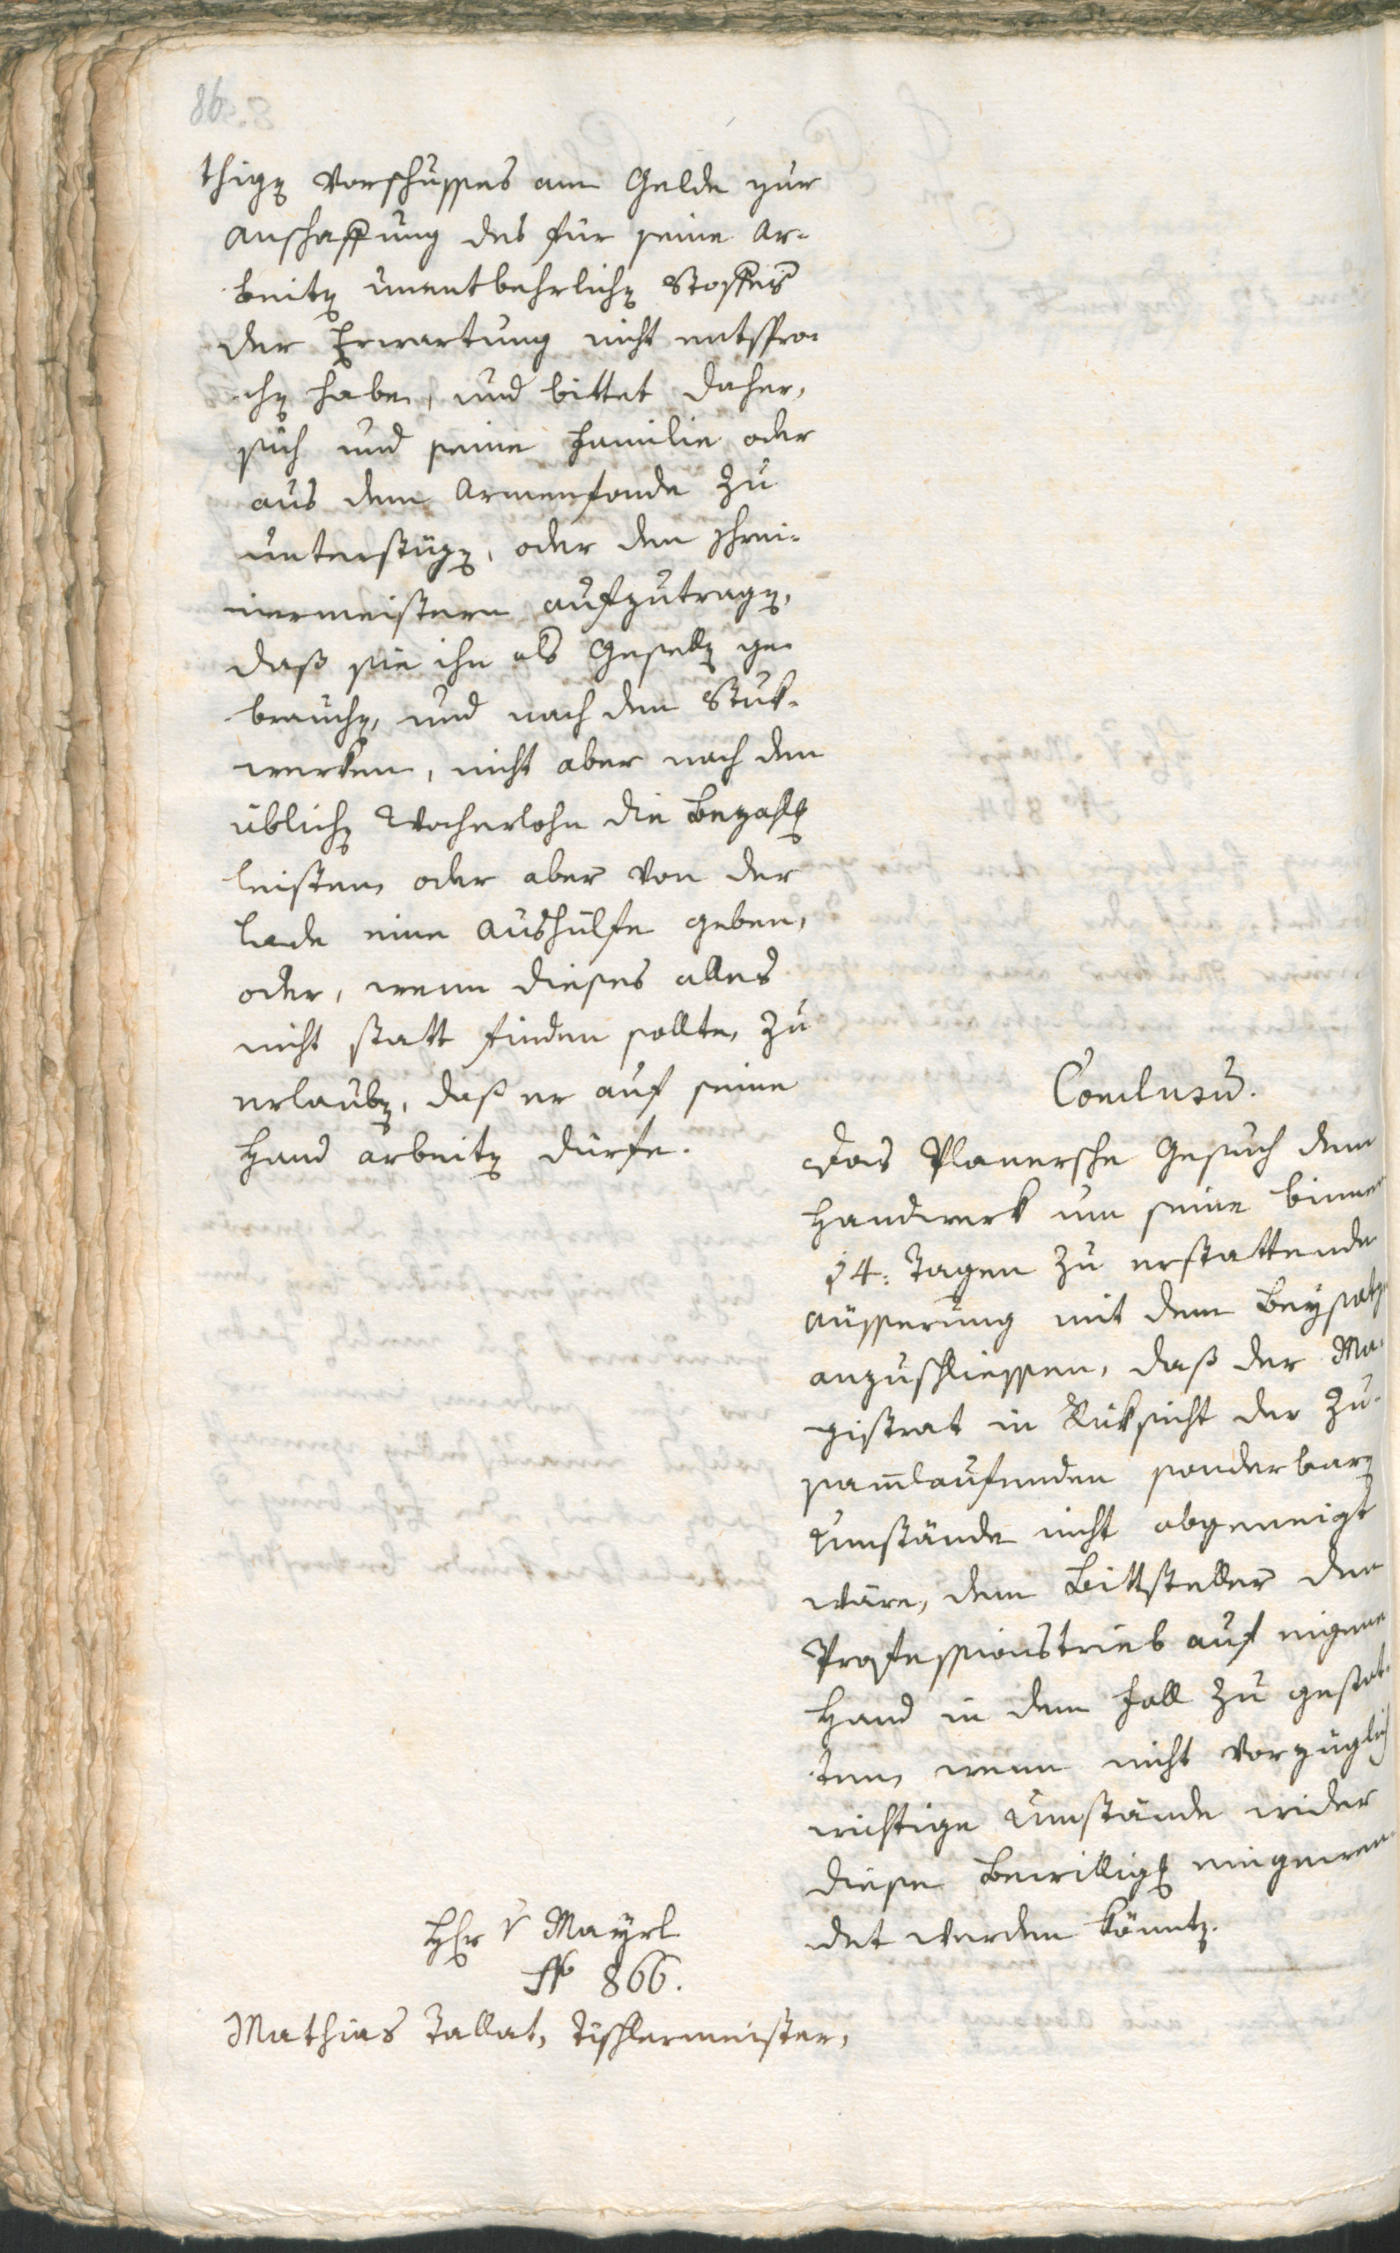 86
thigen Vorschusses am Gelde zur
Anschaffung des für seine Ar-
beiten unentbehrlichen Stoffes
der Erwartung nicht entspro-
chen habe, und bittet daher,
sich und seine Familie oder
aus dem Armenfonde zu
unterstüzen, oder den Schrei-
nermeistern aufzutragen,
daß sie ihn als Gesellen ge-
brauchen, und nach den Stuk-
werken, nicht aber nach dem
üblichen Wochenlohn die Bezahlung
leisten, oder aber von der
Lade eine Aushülfe geben,
oder, wenn dieses alles
nicht statt finden sollte, zu
erlauben, daß er auf seine
Hand arbeiten dürfe.
Conclusũ.
Das Planersche Gesuch dem
Handwerk um seine binnen
14: Tagen zu erstattende
Äusserung mit dem Beysatze
anzuschliessen, daß der Ma-
gistrat in Rüksicht der zu-
sam̄laufenden sonderbaren
Umstände nicht abgeneigt
wäre, dem Bittsteller den
Professionstrieb auf eigene
Hand in dem Fall zu gestat-
ten, wenn nicht vorzüglich
wichtige Umstände wider
diese Bewilligung eingewen-
det werden könnten.
Hr v Mayrl
No 866.
Mathias Tallat, Tischlermeister,